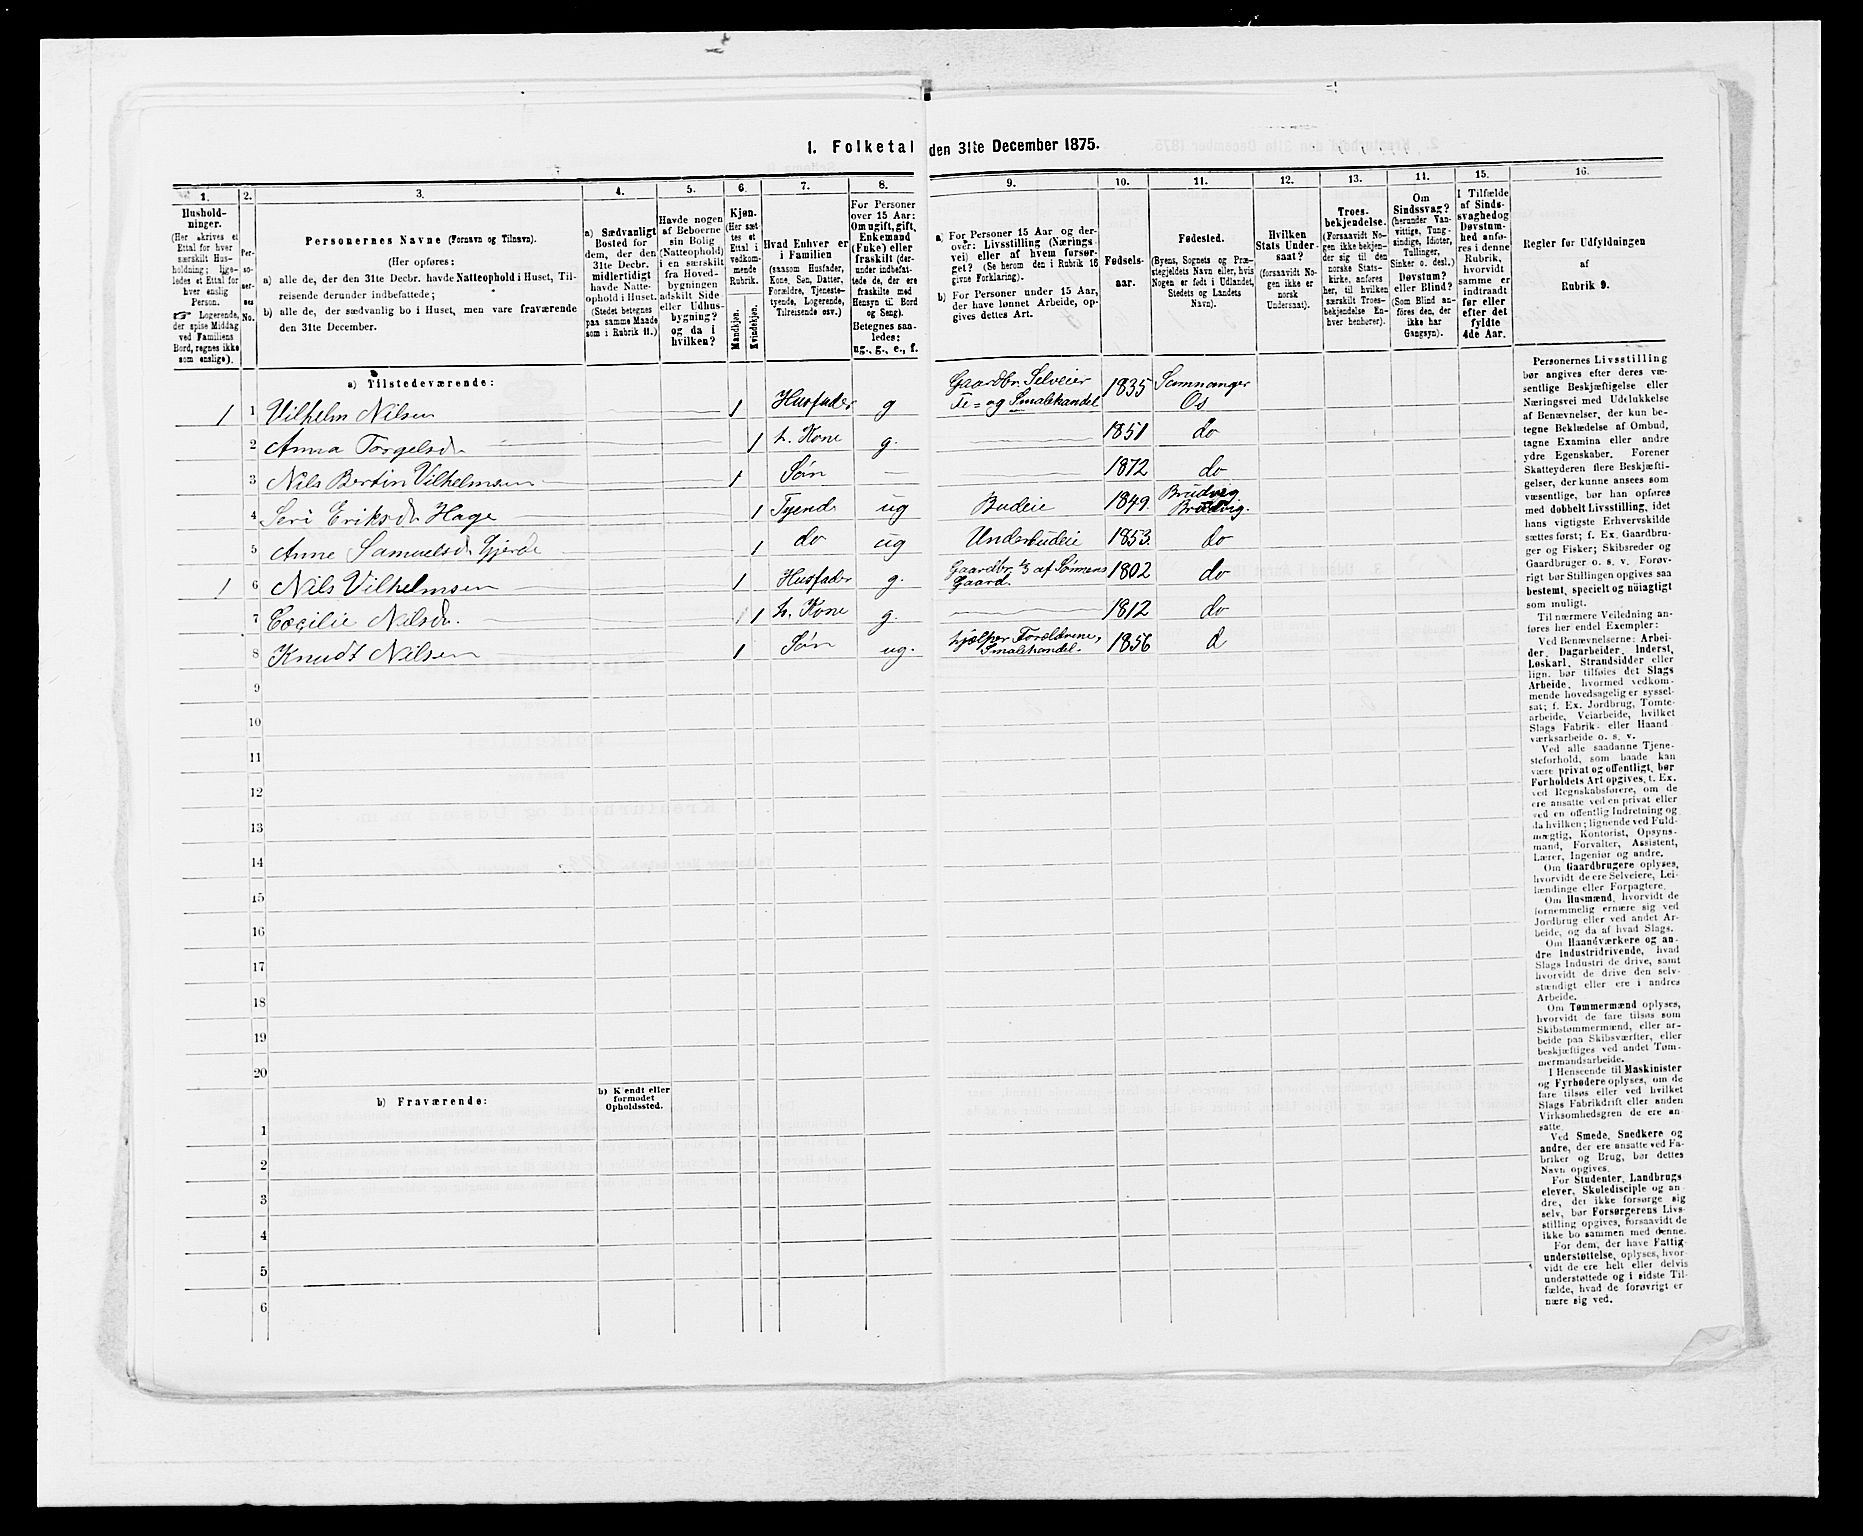 1. Folketal den 31te December 1875.
1.
Hushold-
ninger.
(Her skrives et
Ettal for hver
særskilt Hus-
holdning; lige-
ledes et Ettal for
hver enslig
Person.
Logerende,
der spise Middag
ved Familiens
Bord, regnes ikke
som enslige).
2.
Per-
so-
ner-
nes
No.
3.
Personernes Navne (Fornavn og Tilnavn).
(Her opføres:
a) alle de, der den 31te Decbr. havde Natteophold i Huset, Til-
reisende derunder indbefattede;
b) alle de, der sædvanlig bo i Huset, men vare fraværende
den 31te December.
4.
a) Sædvanligt
Bosted for
dem, der den
31te Decbr.
midlertidigt
havde Natte-
ophold i Huset.
(Stedet betegnes
paa samme Maade
som i Rubrik 11.)
5.
Havde nogen
af Beboerne
sin Bolig
(Natteophold)
i en særskilt
fra Hoved-
bygningen
adskilt Side
eller Udhus-
bygning?
og da i
hvilken?
6.
Kjøn.
(Her sæt-
tes et
Ettal i
vedkom-
mende
Rubrik.
Mandkjøn.
Kvindekjøn.
7.
Hvad Enhver er
i Familien
(saasom Husfader,
Kone, Søn, Datter,
Forældre, Tjeneste-
tyende, Logerende,
Tilreisende osv.)
8.
For Personer
over 15 Aar:
Om ugift, gift,
Enkemand
(Enke) eller
fraskilt (der-
under indbefat-
tede de, der ere
fraskilte med
Hensyn til Bord
og Seng).
Betegnes saa-
ledes:
ug., g., e., f.
9.
a) For Personer 15 Aar og der-
over: Livsstilling (Nærings-
vei) eller af hvem forsør-
get? (Se herom den i Rubrik 16
givne Forklaring).
b) For Personer under 15 Aar,
der have lønnet Arbeide, op-
gives dettes Art.
10.
Fødsels-
aar.
11.
Fødested.
(Byens, Sognets og Præ-
stegjeldets Navn eller, hvis
Nogen er født i Udlandet,
Stedets og Landets
Navn).
12.
Hvilken
Stats Under-
saat?
(forsaavidt No-
gen ikke er
norsk
Undersaat).
13.
Troes-
bekjendelse.
(Forsaavidt No-
gen ikke bekjen-
der sig til den
norske Stats-
kirke, anføres
her, til hvilken
særskilt Troes-
bekjendelse En-
hver henhører).
11.
Om
Sindssvag?
(herunder Van-
vittige, Tung-
sindige, Idioter,
Tullinger,
Sinker o. desl.)
Døvstum?
eller Blind?
(Som Blind an-
føres den, der
ikke har
Gangsyn).
15.
I Tilfælde
af Sinds-
svaghed og
Døvstum-
hed anfø-
res i denne
Rubrik,
hvorvidt
samme er
indtraadt
før eller
efter det
fyldte
4de Aar.
16.
Regler for Udfyldningen
af
Rubrik 9.
a) Tilstedeværende:
1 1 Vilhelm Nilsen 1 Husfader g Gaardbr. Selveier Te- og Smalehandel 1835 Samnanger Os
2 Anna Torgelsd 1 h. Kone g. 1851 do
3 Nils Bertin Vilhelmsen 1 Søn 1872 do
4 Seri Eriksd Hage 1 Tyende ug Budeie 1849. Brudvig Brudvig.
5 Anne Samuelsd 1 do ug Underbudeie 1853. do
1 6 Nils Vilhelmsen 1 Husfader g. Gaardbr. af Sønnens Gaard. 1802 do
7 Cecilie Nilsd. 1 h. Kone g. 1812 do
8 Knudt Nilsen 1 Søn ug. hjælper Forældrene, Smalehandel. 1856 d
9
10
11
12
13
14
15
16
17
18
19
20
b) Fraværende:
b) Kjendt eller
formodet
Opholdssted.
1
2
3
4
5
6
Personernes Livsstilling
bør angives efter deres væ-
sentlige Beskjæftigelse eller
Næringsvei med Udelukkelse
af Benævnelser, der kun be-
tegne Beklædelse af Ombud,
tagne Examina eller andre
ydre Egenskaber. Forener
Skatteyderen flere Beskjæfti-
gelser, der kunne ansees som
væsentlige, bør han opføres
med dobbelt Livsstilling, idet
hans vigtigste Erhvervskilde
sættes først; f. Ex. Gaardbru-
ger og Fisker; Skibsreder og
Gaardbruger o. s. v. Forøv-
rigt bør Stillingen opgives saa
bestemt, specielt og nøiagtigt
som muligt.
Til nærmere Veiledning an-
føres her endel Exempler:
Ved Benævnelserne: Arbei-
der, Dagarbeider, Inderst,
Løskarl, Strandsidder eller
lign. bør tilføies det Slags
Arbeide, hvormed vedkom-
mende hovedsagelig er syssel-
sat; f. Ex. Jordbrug, Tomte-
arbeide, Veiarbeide, hvilket
Slags Fabrik- eller Haand-
værksarbeide o. s. v.
Ved alle saadanne Tjene-
steforhold, som baade kan
være privat og offentligt, bør
Forholdets Art opgives, t. Ex.
ved Regnskabsførere, om de
ere ansatte ved en privat eller
ved en offentlig Indretning og
da hvilken; lignende ved Fuld-
mægtig, Kontorist, Opsyns-
mand, Forvalter, Assistent,
Lærer, Ingeniør og andre.
Om Gaardbrugere oplyses,
hvorvidt de ere Selveiere, Lei-
lændinge eller Forpagtere.
Om Husmænd, hvorvidt de
fornemmelig ernære sig ved
Jordbrug eller ved andet Ar-
beide, og da af hvad Slags.
Om Haandværkere og an-
dre Industridrivende, hvad
Slags Industri de drive, samt
hvorvidt de drive den selv-
stændigt eller ere i andres
Arbeide.
Om Tømmermænd oplyses,
hvorvidt de fare tilsøs som
Skibstømmermænd, eller ar-
beide paa Skibsværfter, eller
beskjæftiges ved andet Tøm-
mermandsarbeide.
I Henseende til Maskinister
og Fyrbødere oplyses, om de
fare tilsøs eller ved hvilket
Slags Fabrikdrift eller anden
Virksomhedsgren de ere an-
satte.
Ved Smede, Snedkere og
andre, der ere ansatte ved Fa-
briker og Brug, bør dettes
Navn opgives.
For Studenter, Landbrugs-
elever, Skoledisciple og an-
dre, der ikke forsørge sig
selv, bør Forsørgerens Livs-
stilling opgives, forsaavidt de
ikke bo sammen med denne.
For dem, der have Fattig-
understøttelse, oplyses, hvor-
vidt de ere helt eller delvis
understøttede og i sidste Til-
fælde, hvad de forøvrigt er-
nære sig ved.